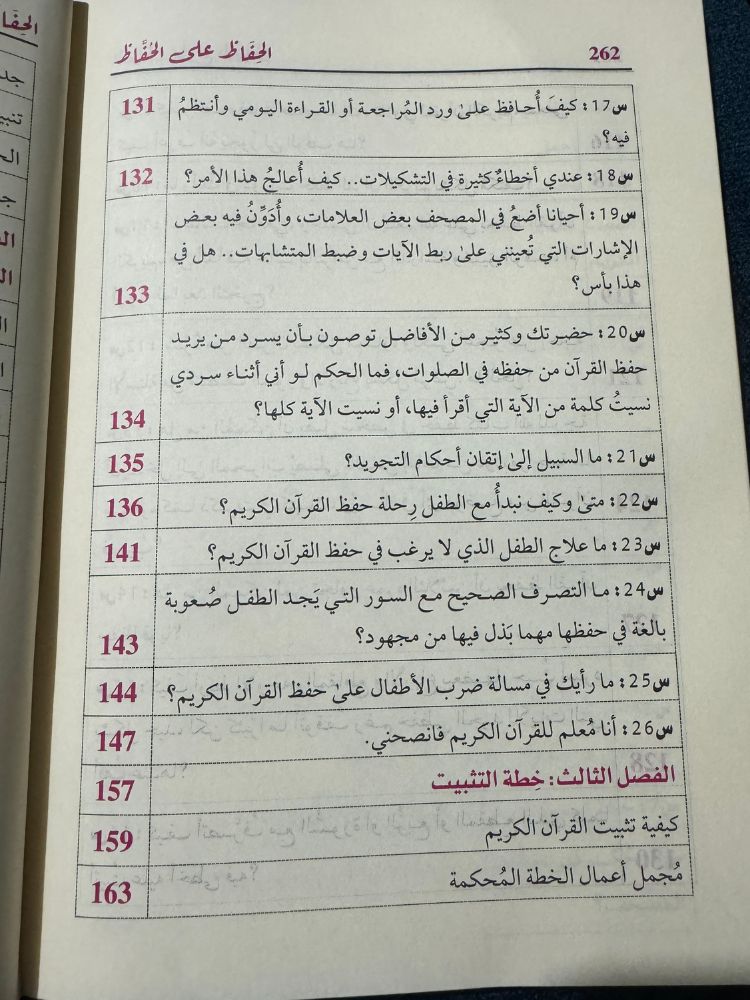 262
الحِفَاظ على الحُفَّاظ
س17: كيفَ أُحافظ علىٰ ورد المُراجعة أو القراءة اليومي وأنتظمُ
فيه؟
131
س18: عندي أخطاءٌ كثيرة في التشكيلات.. كيف أُعالجُ هذا الأمر؟
132
س19: أحيانا أضعُ في المصحف بعض العلامات، وأُدَوِّنُ فيه بعض
الإشارات التي تُعينني علىٰ ربط الآيات وضبط المتشابهات.. هل في
هذا بأس؟
133
س20: حضرتك وكثير من الأفاضل توصون بأن يسرد من يريد
حفظ القرآن من حفظه في الصلوات، فما الحكم لو أني أثناء سردي
نسيتُ كلمة من الآية التي أقرأ فيها، أو نسيت الآية كلها؟
134
س21: ما السبيل إلىٰ إتقان أحكام التجويد؟
135
س22: متىٰ وكيف نبدأُ مع الطفل رِحلة حفظ القرآن الكريم؟
136
س23: ما علاج الطفل الذي لا يرغب في حفظ القرآن الكريم؟
141
س24: ما التصرف الصحيح مع السور التي يَجد الطفل صُعوبة
بالغة في حفظها مهما بَذل فيها من مجهود؟
143
س25: ما رأيك في مسالة ضرب الأطفال علىٰ حفظ القرآن الكريم؟
144
س26: أنا مُعلم للقرآن الكريم فانصحني.
147
الفصل الثالث: خِطة التثبيت
157
كيفية تثبيت القرآن الكريم
159
مُجمل أعمال الخطة المُحكمة
163